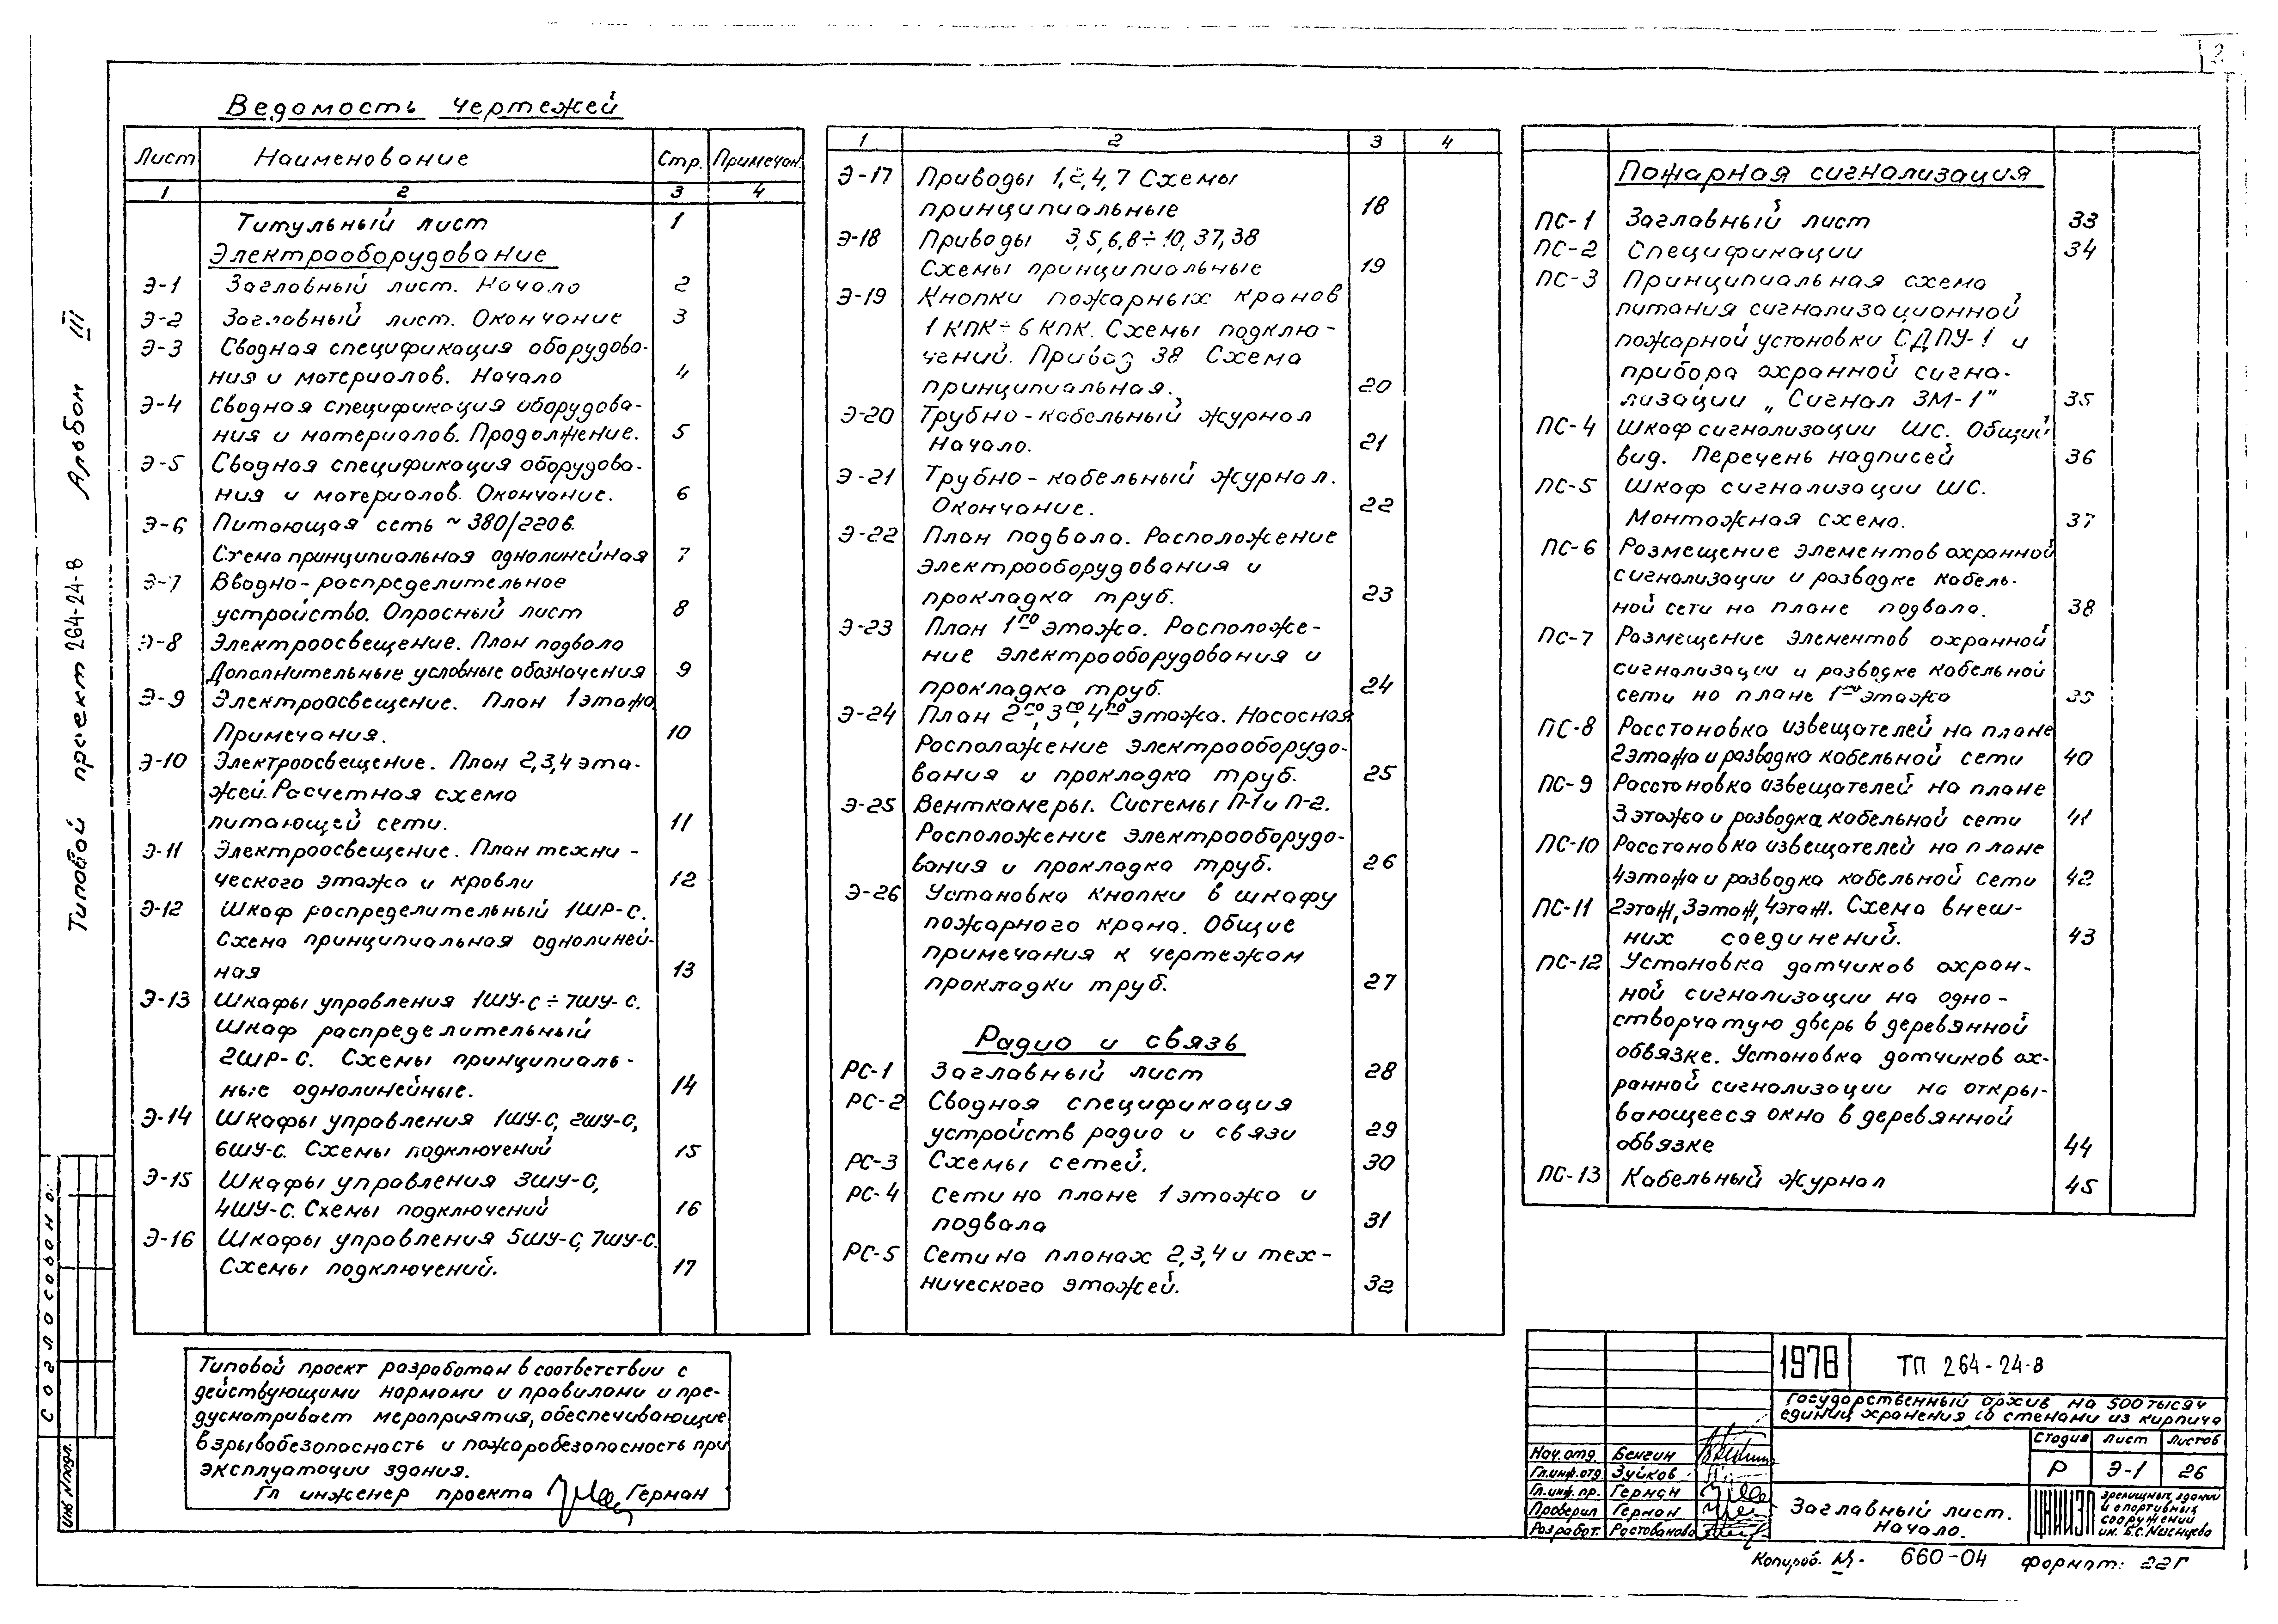 2
Ведомость чертежей
Лист Наименование Стр. Примечан.
1 2 3 4
Титульный лист 1
Электрооборудование
Э-1 Заглавный лист. Начало 2
Э-2 Заглавный лист. Окончание 3
Э-3 Сводная спецификация оборудова-
ния и материалов. Начало 4
Э-4 Сводная спецификация оборудова-
ния и материалов. Продолжение. 5
Э-5 Сводная спецификация оборудова-
ния и материалов. Окончание. 6
Э-6 Питающая сеть ~ 380/220в.
Схема принципиальная однолинейная 7
Э-7 Вводно-распределительное
устройство. Опросный лист 8
Э-8 Электроосвещение. План подвала
Дополнительные условные обозначения 9
Э-9 Электроосвещение. План 1 этажа
Примечания. 10
Э-10 Электроосвещение. План 2,3,4 эта-
жей. Расчетная схема
питающей сети. 11
Э-11 Электроосвещение. План техни-
ческого этажа и кровли 12
Э-12 Шкаф распределительный 1ШР-С.
Схема принципиальная однолиней-
ная 13
Э-13 Шкафы управления 1ШУ-С÷7ШУ-С.
Шкаф распределительный
2ШР-С. Схемы принципиаль-
ные однолинейные. 14
Э-14 Шкафы управления 1ШУ-С, 2ШУ-С,
6ШУ-С. Схемы подключений 15
Э-15 Шкафы управления 3ШУ-С,
4ШУ-С. Схемы подключений 16
Э-16 Шкафы управления 5ШУ-С, 7ШУ-С.
Схемы подключений. 17
1 2 3 4
Э-17 Приводы 1,2,4,7 Схемы
принципиальные 18
Э-18 Приводы 3,5,6,8÷10,37,38
Схемы принципиальные 19
Э-19 Кнопки пожарных кранов
1 КПК÷6 КПК. Схемы подклю-
чений. Привод 38 Схема
принципиальная. 20
Э-20 Трубно-кабельный журнал
Начало. 21
Э-21 Трубно-кабельный журнал.
Окончание. 22
Э-22 План подвала. Расположение
электрооборудования и
прокладка труб. 23
Э-23 План 1го этажа. Расположе-
ние электрооборудования и
прокладка труб. 24
Э-24 План 2го, 3го, 4го этажа. Насосная
Расположение электрооборудо-
вания и прокладка труб. 25
Э-25 Венткамеры. Системы П-1 и П-2.
Расположение электрооборудо-
вания и прокладка труб. 26
Э-26 Установка кнопки в шкафу
пожарного крана. Общие
примечания к чертежам
прокладки труб. 27
Радио и связь
РС-1 Заглавный лист 28
РС-2 Сводная спецификация
устройств радио и связи 29
РС-3 Схемы сетей. 30
РС-4 Сети на плане 1 этажа и
подвала 31
РС-5 Сети на планах 2,3,4 и тех-
нического этажей. 32
Пожарная сигнализация
ПС-1 Заглавный лист 33
ПС-2 Спецификации 34
ПС-3 Принципиальная схема
питания сигнализационной
пожарной установки СДПУ-1 и
прибора охранной сигна-
лизации „Сигнал ЗМ-1" 35
ПС-4 Шкаф сигнализации ШС. Общий
вид. Перечень надписей 36
ПС-5 Шкаф сигнализации ШС.
Монтажная схема. 37
ПС-6 Размещение элементов охранной
сигнализации и разводке кабель-
ной сети на плане подвала. 38
ПС-7 Размещение элементов охранной
сигнализации и разводке кабельной
сети на плане 1го этажа 39
ПС-8 Расстановка извещателей на плане
2 этажа и разводка кабельной сети 40
ПС-9 Расстановка извещателей на плане
3 этажа и разводка кабельной сети 41
ПС-10 Расстановка извещателей на плане
4 этажа и разводка кабельной сети 42
ПС-11 2 этаж, 3 этаж, 4 этаж. Схема внеш-
них соединений. 43
ПС-12 Установка датчиков охран-
ной сигнализации на одно-
створчатую дверь в деревянной
обвязке. Установка датчиков ох-
ранной сигнализации на откры-
вающееся окно в деревянной
обвязке 44
ПС-13 Кабельный журнал 45
Типовой проект 264-24-8 Альбом III
Согласовано:
Инв № подл.
Типовой проект разработан в соответствии с
действующими нормами и правилами и пре-
дусматривает мероприятия, обеспечивающие
взрывобезопасность и пожаробезопасность при
эксплуатации здания.
Гл инженер проекта Герман
1978 ТП 264-24-8
Государственный архив на 500 тысяч
единиц хранения со стенами из кирпича
Стадия Лист Листов
Р Э-1 26
Нач.отд. Бенгин
Гл.инж.отд Зуйков
Гл.инж.пр. Герман
Проверил Герман
Разработ. Ростованова
Заглавный лист.
Начало.
ЦНИИЭП зрелищных зданий
и спортивных
сооружений
им. Б.С. Мезенцева
Копиров. 660-04 Формат: 22Г